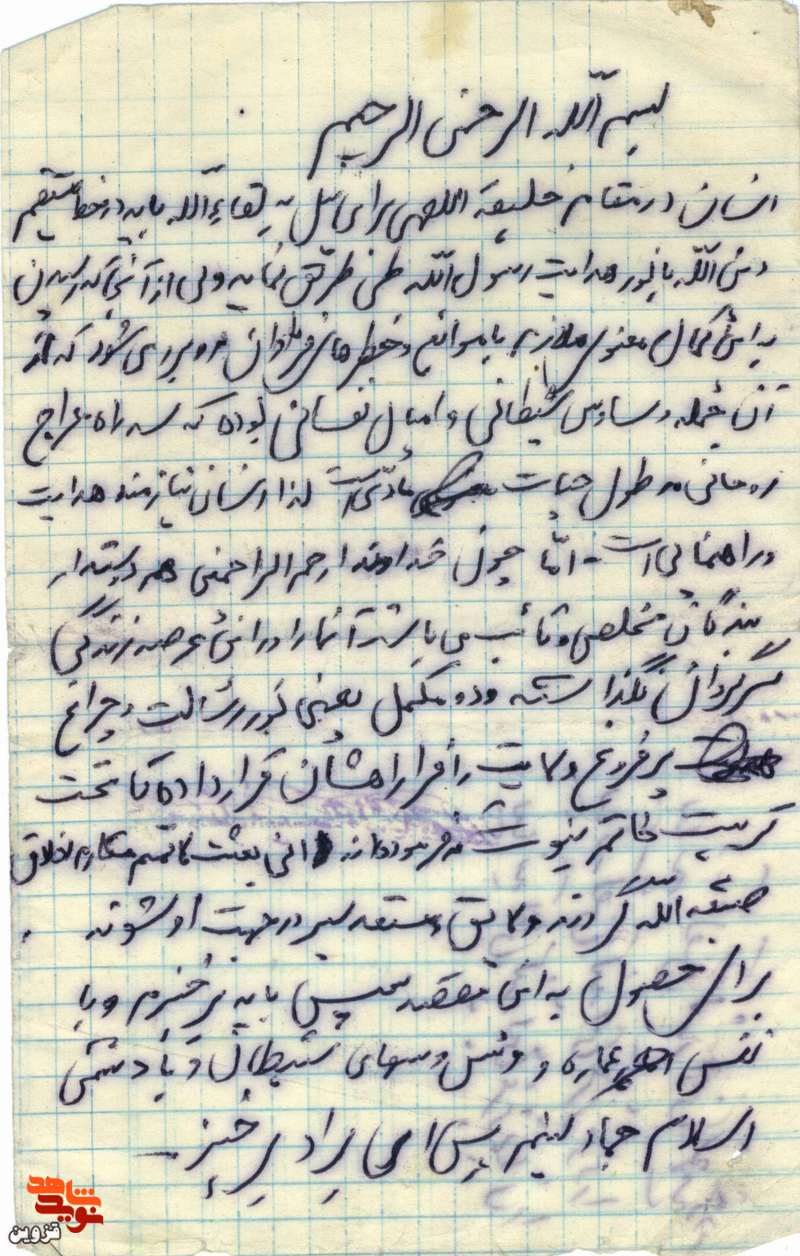 بسم الله الرحمن الرحیم
انسان در مقام خلیفه اللهی برای نیل به لقاء الله باید در خط مستقیم
دین الله با نور هدایت رسول الله طی طریق نماید ولی از آنجا که رسیدن
به این کمال معنوی ملازم با موانع و خطرهای فراوان روبرو می شود که از
آن جمله وساوس شیطانی و امیال نفسانی بوده که سد راه معراج
روحانی در طول حیات مادی است لذا انسان نیازمند هدایت
و راهنمائی است - امّا چون خداوند ارحم الراحمین هم دوستدار
بندگان مخلص و تائب می باشد آنها را در این عرصه زندگی
سرگردان نگذاشته و دو مکمل یعنی نور رسالت و چراغ
پر فروغ ولایت را فرا راهشان قرار داده تا تحت
تربیت خاتم نبوت که فرموده اند انی بعثت لاتمم مکارم اخلاق
صبغه الله گردند و لایق و مستعد سیر در جهت او شوند .
برای حصول به این مقصد سپس باید برخیزم و با
نفس اماره و وسوسهای شیطان و با دشمن
اسلام جهاد کنیم پس ای برادر برخیز
نوید شاهد
قزوین